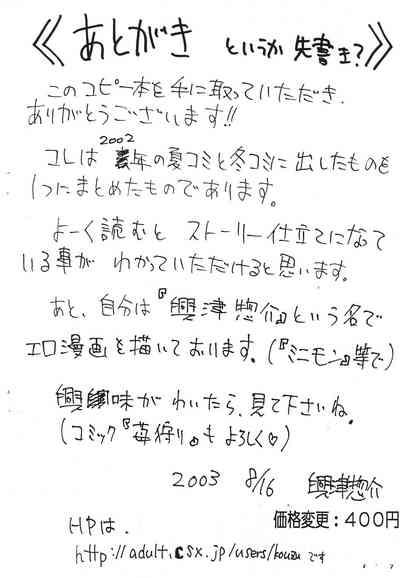 《あとがき というか 先書き?》
このコピー本を手に取っていただき、
ありがとうございます!!
コレは 2002年の夏コミと冬コミに出したものを
1つにまとめたものであります。
よーく読むと ストーリー仕立てになって
いる事が わかっていただけると思います。
あと、自分は『興津惣介』という名で
エロ漫画を描いております。(『ミニモン』等で)
興味がわいたら、見て下さいね。
(コミック『苺狩り』も よろしく♡)
2003 8/16 興津惣介
価格変更：400円
HPは、
http://adult.csx.jp/users/kouzu です